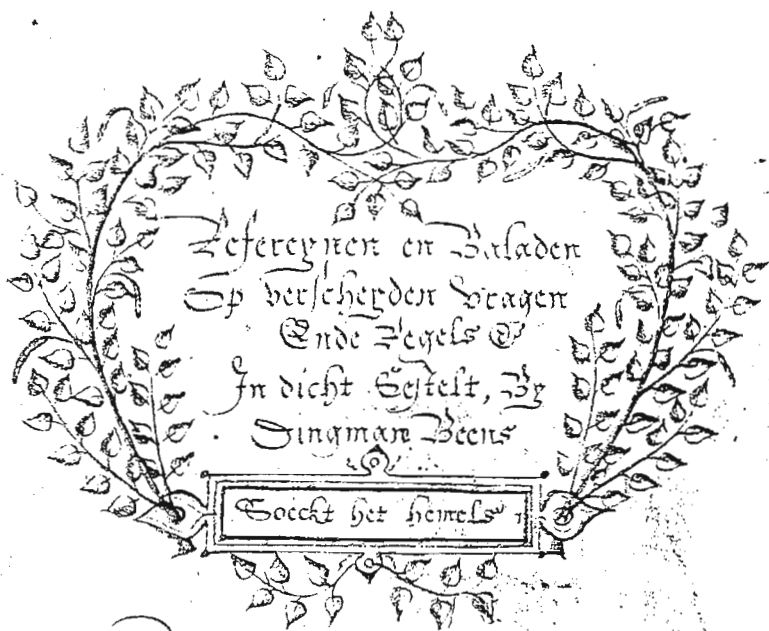 Refereynen en Baladen
Op verscheyden vragen
Ende Regels &
In dicht Gestelt, By
Dingman Beens
Soeckt het hemels